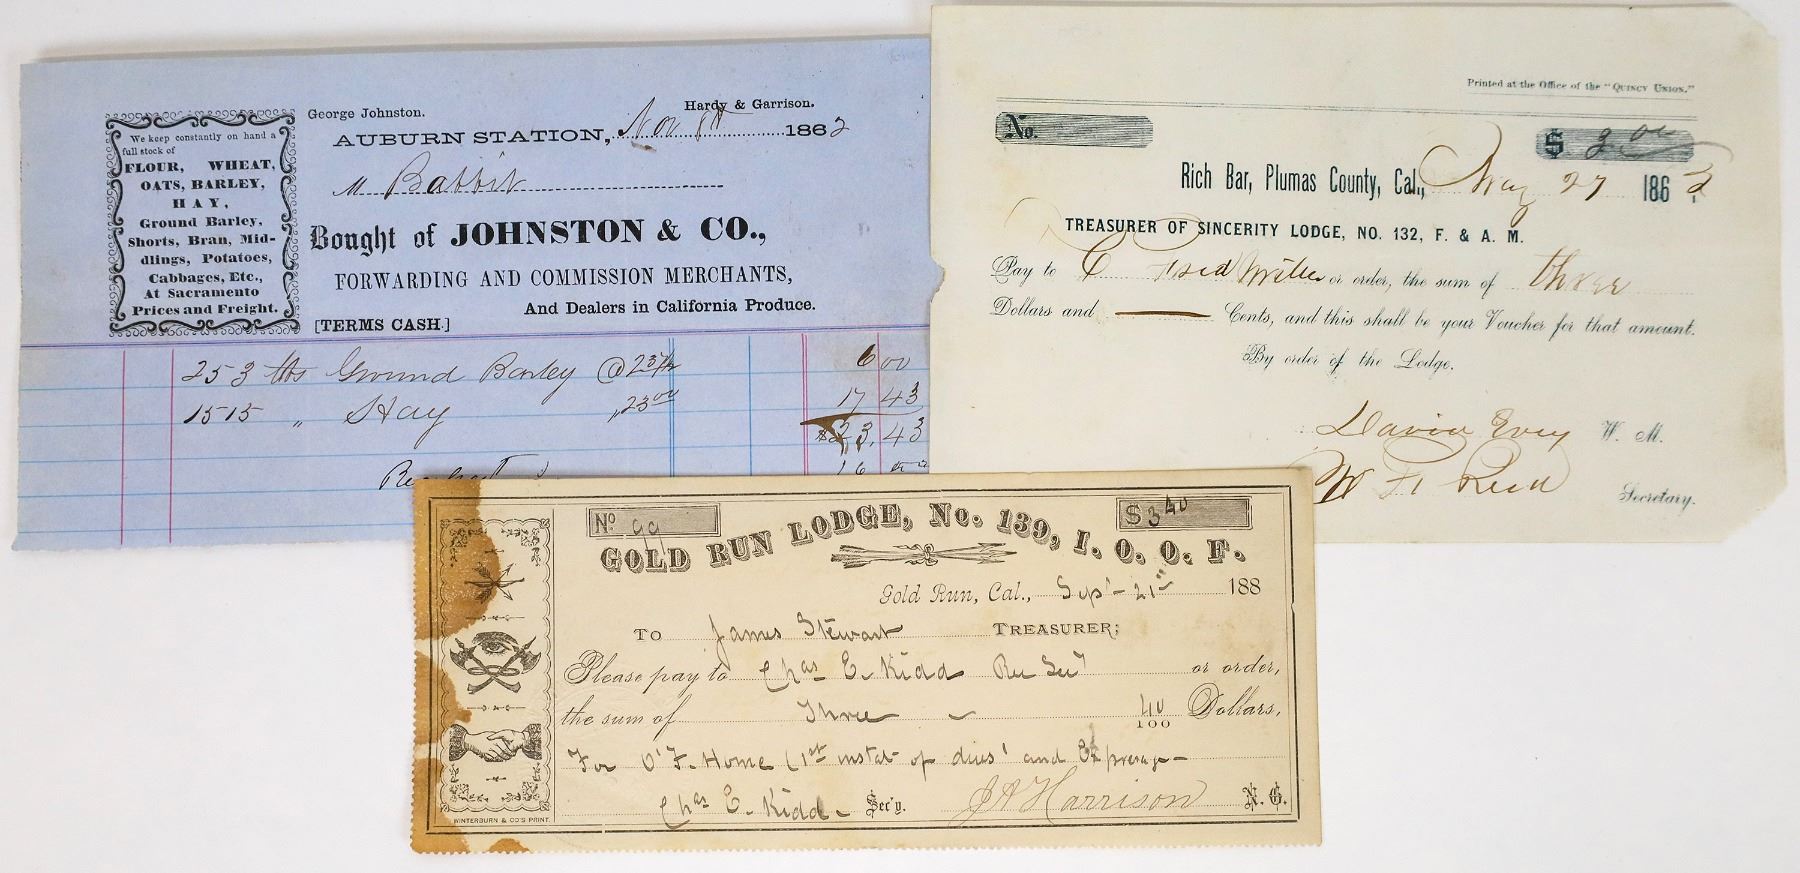 George Johnston.
Hardy & Garrison.
AUBURN STATION, Nov 8th 1862
M Babbit
Bought of JOHNSTON & CO.,
FORWARDING AND COMMISSION MERCHANTS,
And Dealers in California Produce.
[TERMS CASH.]
We keep constantly on hand a
full stock of
FLOUR, WHEAT,
OATS, BARLEY,
HAY,
Ground Barley,
Shorts, Bran, Mid-
dlings, Potatoes,
Cabbages, Etc.,
At Sacramento
Prices and Freight.
253 lbs Ground Barley @ 6 00
1515 " Hay " 23 00 17 43
$23.43
16
Printed at the Office of the "QUINCY UNION."
No.
$ 3 00
Rich Bar, Plumas County, Cal., May 27 1863
TREASURER OF SINCERITY LODGE, NO. 132, F. & A. M.
Pay to C Fred Miller or order, the sum of three
Dollars and — Cents, and this shall be your Voucher for that amount.
By order of the Lodge.
David W. M.
W Secretary.
No 99
$ 3 40
GOLD RUN LODGE, No. 139, I. O. O. F.
Gold Run, Cal., Sept - 21st 188
TO James Stewart TREASURER;
Please pay to Chas E. Kidd Rec Sec'y or order,
the sum of Three — 40/100 Dollars,
For O'F. Home (1st instal- of dues' and Expressage-
Chas E. Kidd- Sec'y. J A Harrison N. G.
WINTERBURN & CO'S PRINT.